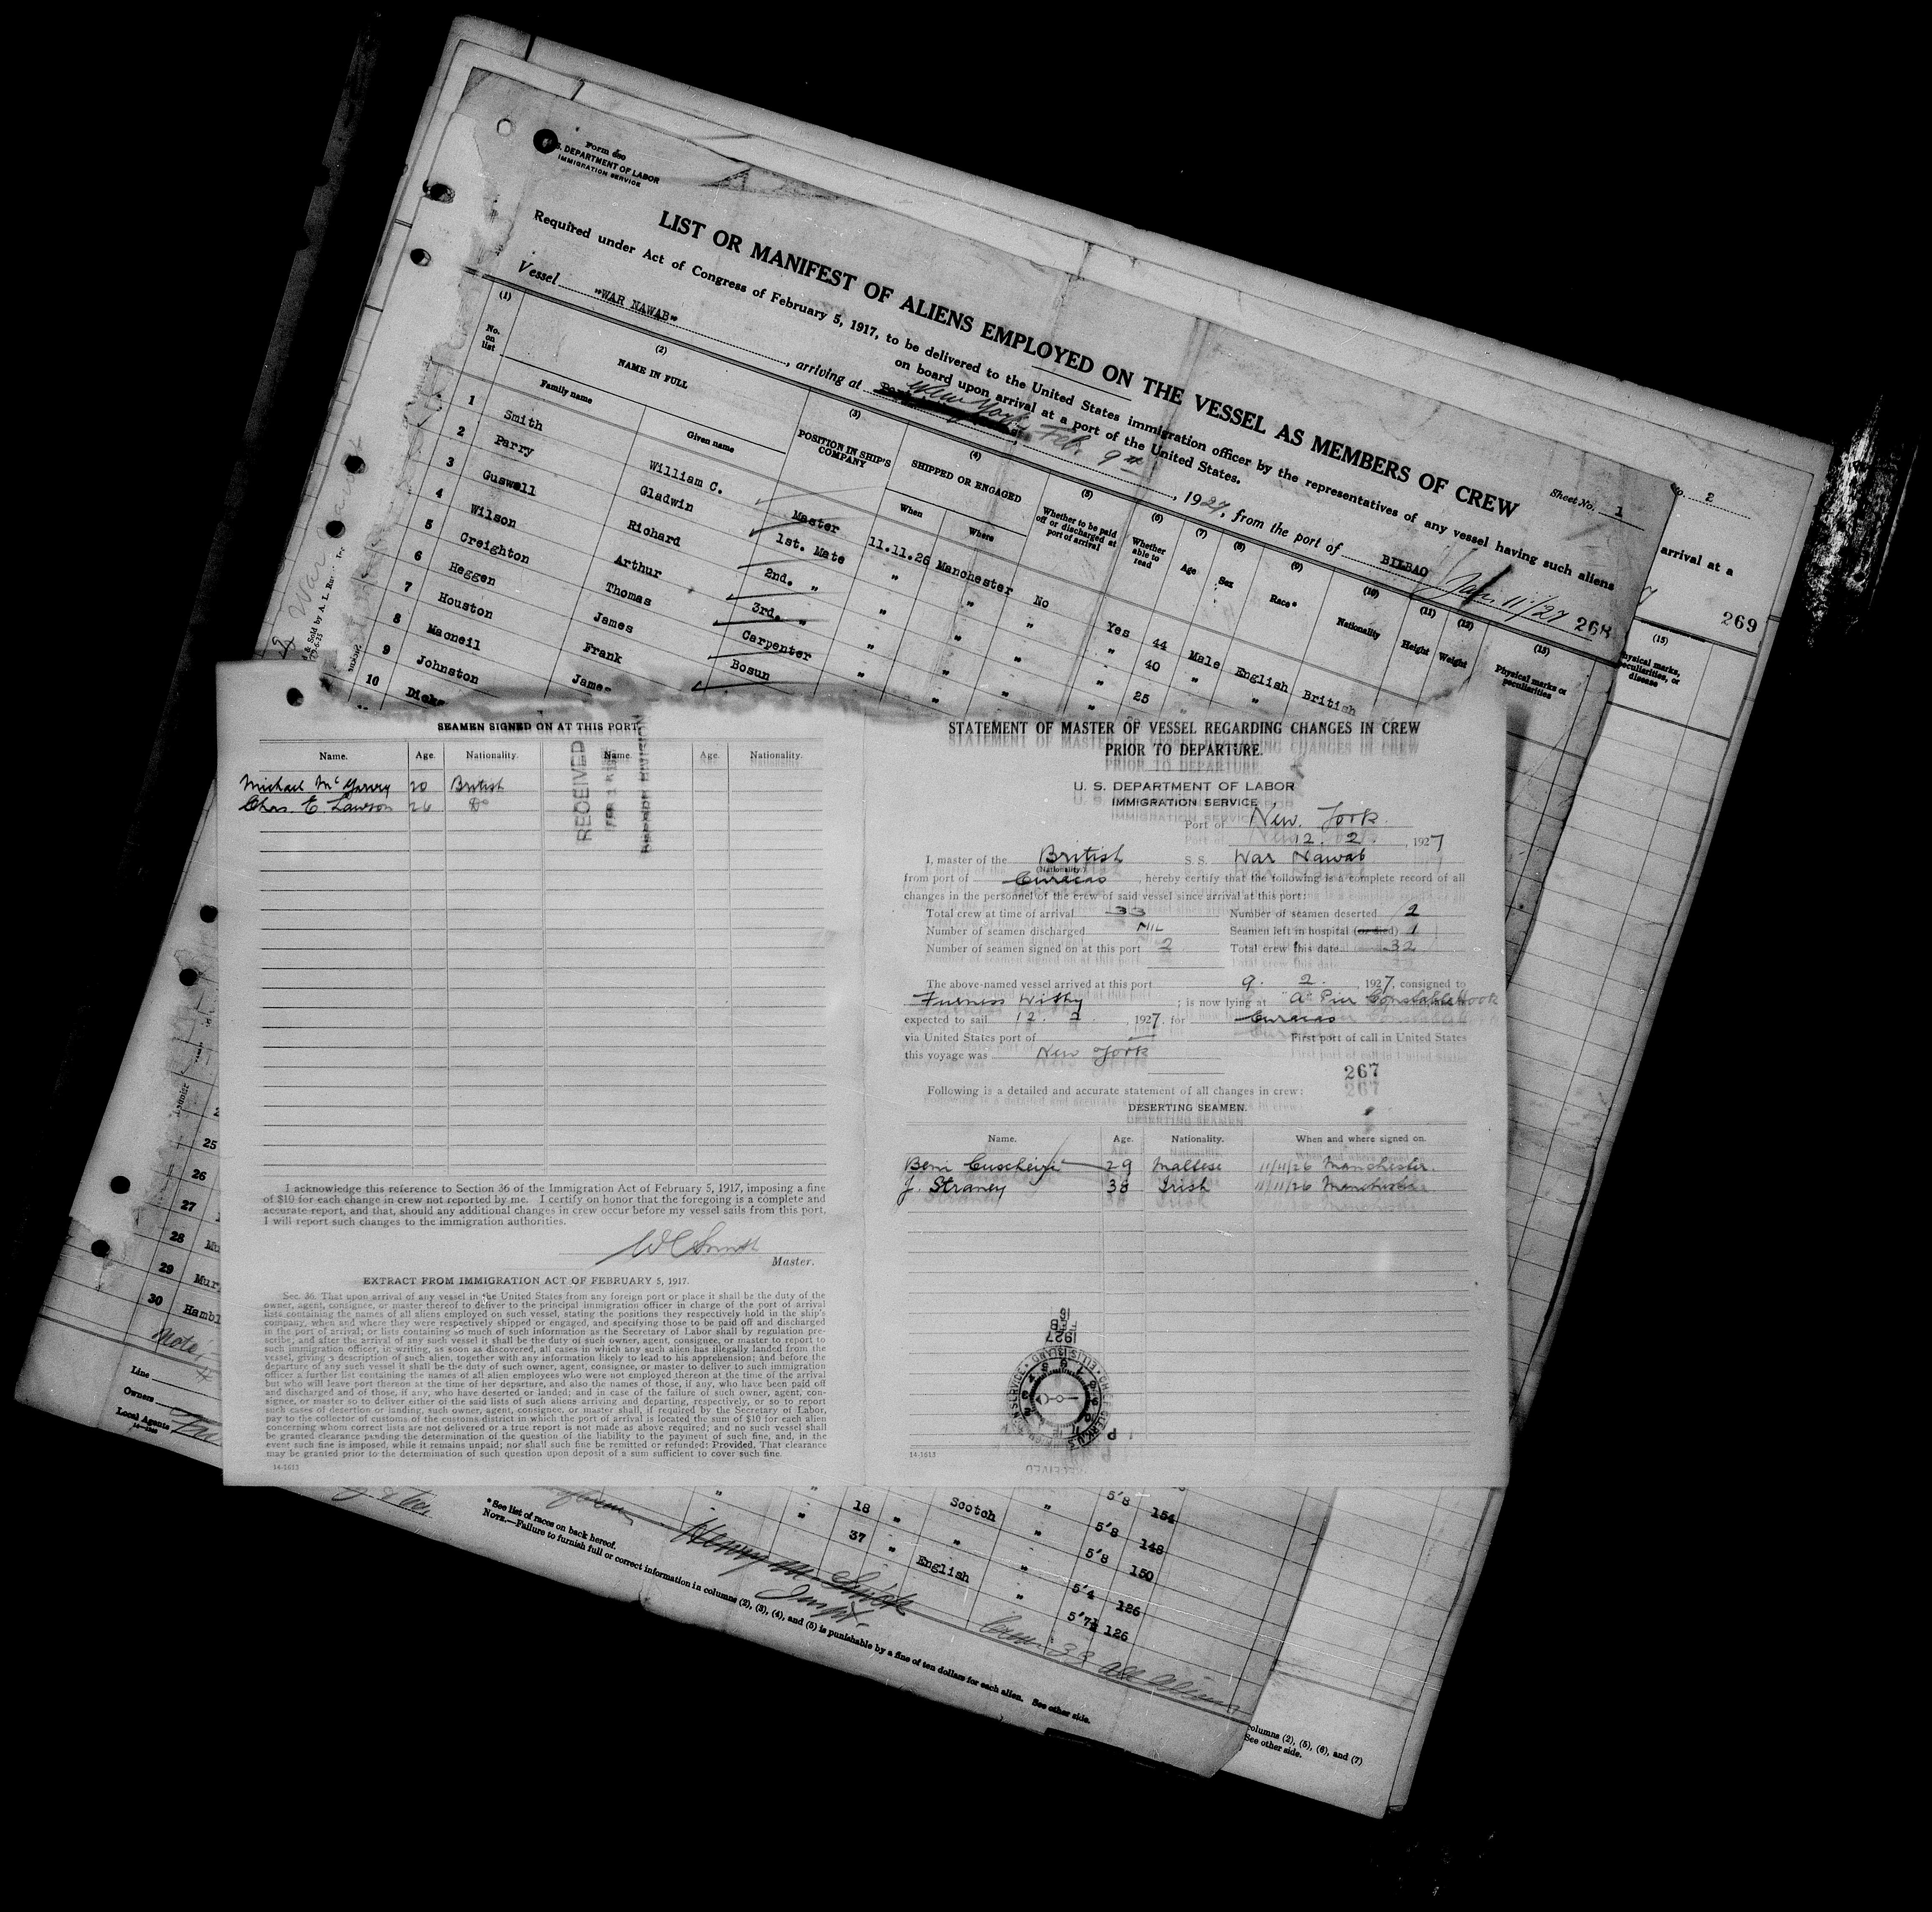 Form 680
U. S. DEPARTMENT OF LABOR
IMMIGRATION SERVICE
LIST OR MANIFEST OF ALIENS EMPLOYED ON THE VESSEL AS MEMBERS OF CREW
Sheet No. 1
Required under Act of Congress of February 5, 1917, to be delivered to the United States immigration officer by the representatives of any vessel having such aliens
on board upon arrival at a port of the United States.
Vessel "WAR NAWAB", arriving at New York, Feb. 9th, 1927, from the port of BILBAO Jan. 11/27 268
(1) (2) (3) (4) (5) (6) (7) (8) (9) (10) (11) (12) (13)
No. on list
NAME IN FULL
Family name
Given name
POSITION IN SHIP'S COMPANY
SHIPPED OR ENGAGED
When
Where
Whether to be paid off or discharged at port of arrival
Whether able to read
Age
Sex
Race*
Nationality
Height
Weight
Physical marks or peculiarities
1 Smith William C. Master 11.11.26 Manchester No Yes 44 Male English British
2 Parry Gladwin 1st. Mate " " " " 40 " "
3 Guswell Richard 2nd. " " " " 25
4 Wilson Arthur 3rd. "
5 Creighton Thomas Carpenter
6 Heggen James Bosun
7 Houston Frank
8 Macneil James
9 Johnston
10 Dicks
No. 2
arrival at a
269
(15)
physical marks, peculiarities, or disease
SEAMEN SIGNED ON AT THIS PORT.
Name. Age. Nationality. Name. Age. Nationality.
Michael McGarvey 20 British
Chas. E. Lawson 26 Do
RECEIVED
I acknowledge this reference to Section 36 of the Immigration Act of February 5, 1917, imposing a fine
of $10 for each change in crew not reported by me. I certify on honor that the foregoing is a complete and
accurate report, and that, should any additional changes in crew occur before my vessel sails from this port,
I will report such changes to the immigration authorities.
W C Smith
Master.
EXTRACT FROM IMMIGRATION ACT OF FEBRUARY 5, 1917.
Sec. 36. That upon arrival of any vessel in the United States from any foreign port or place it shall be the duty of the
owner, agent, consignee, or master thereof to deliver to the principal immigration officer in charge of the port of arrival
lists containing the names of all aliens employed on such vessel, stating the positions they respectively hold in the ship's
company, when and where they were respectively shipped or engaged, and specifying those to be paid off and discharged
in the port of arrival; or lists containing so much of such information as the Secretary of Labor shall by regulation pre-
scribe; and after the arrival of any such vessel it shall be the duty of such owner, agent, consignee, or master to report to
such immigration officer, in writing, as soon as discovered, all cases in which any such alien has illegally landed from the
vessel, giving a description of such alien, together with any information likely to lead to his apprehension; and before the
departure of any such vessel it shall be the duty of such owner, agent, consignee, or master to deliver to such immigration
officer a further list containing the names of all alien employees who were not employed thereon at the time of the arrival
but who will leave port thereon at the time of her departure, and also the names of those, if any, who have been paid off
and discharged and of those, if any, who have deserted or landed; and in case of the failure of such owner, agent, con-
signee, or master so to deliver either of the said lists of such aliens arriving and departing, respectively, or so to report
such cases of desertion or landing, such owner, agent, consignee, or master, shall, if required by the Secretary of Labor,
pay to the collector of customs of the customs district in which the port of arrival is located the sum of $10 for each alien
concerning whom correct lists are not delivered or a true report is not made as above required; and no such vessel shall
be granted clearance pending the determination of the question of the liability to the payment of such fine, and, in the
event such fine is imposed, while it remains unpaid; nor shall such fine be remitted or refunded: Provided, That clearance
may be granted prior to the determination of such question upon deposit of a sum sufficient to cover such fine.
14-1613
STATEMENT OF MASTER OF VESSEL REGARDING CHANGES IN CREW
PRIOR TO DEPARTURE.
U. S. DEPARTMENT OF LABOR
IMMIGRATION SERVICE
Port of New York
12. 2., 1927
I, master of the British S. S. War Nawab
(Nationality.)
from port of Curacao, hereby certify that the following is a complete record of all
changes in the personnel of the crew of said vessel since arrival at this port:
Total crew at time of arrival 33 Number of seamen deserted 2
Number of seamen discharged NIL Seamen left in hospital (or died) 1
Number of seamen signed on at this port 2 Total crew this date 32
The above-named vessel arrived at this port 9. 2., 1927, consigned to
Furness Withy; is now lying at "A" Pier Constable Hook
expected to sail 12. 2., 1927, for Curacao
via United States port of First port of call in United States
this voyage was New York
267
Following is a detailed and accurate statement of all changes in crew:
DESERTING SEAMEN.
Name. Age. Nationality. When and where signed on.
Beni Cuscheiri 29 Maltese 11/11/26 Manchester.
J. Straney 38 Irish 11/11/26 Manchester
1927
ELLIS ISLAND
RECEIVED
14-1613
25
26
27
28 Mu
29 Mur
30 Hambl
Note
Line
Owners
Local Agents
5'8 154
18 " Scotch " 5'8 148
37 " " " 5'8 150
English " 5'4 126
" 5'7½ 126
*See list of races on back hereof.
NOTE.—Failure to furnish full or correct information in columns (2), (3), (4), and (5) is punishable by a fine of ten dollars for each alien. See other side.
Crew 33 all aliens
columns (2), (5), (6), and (7)
See other side.